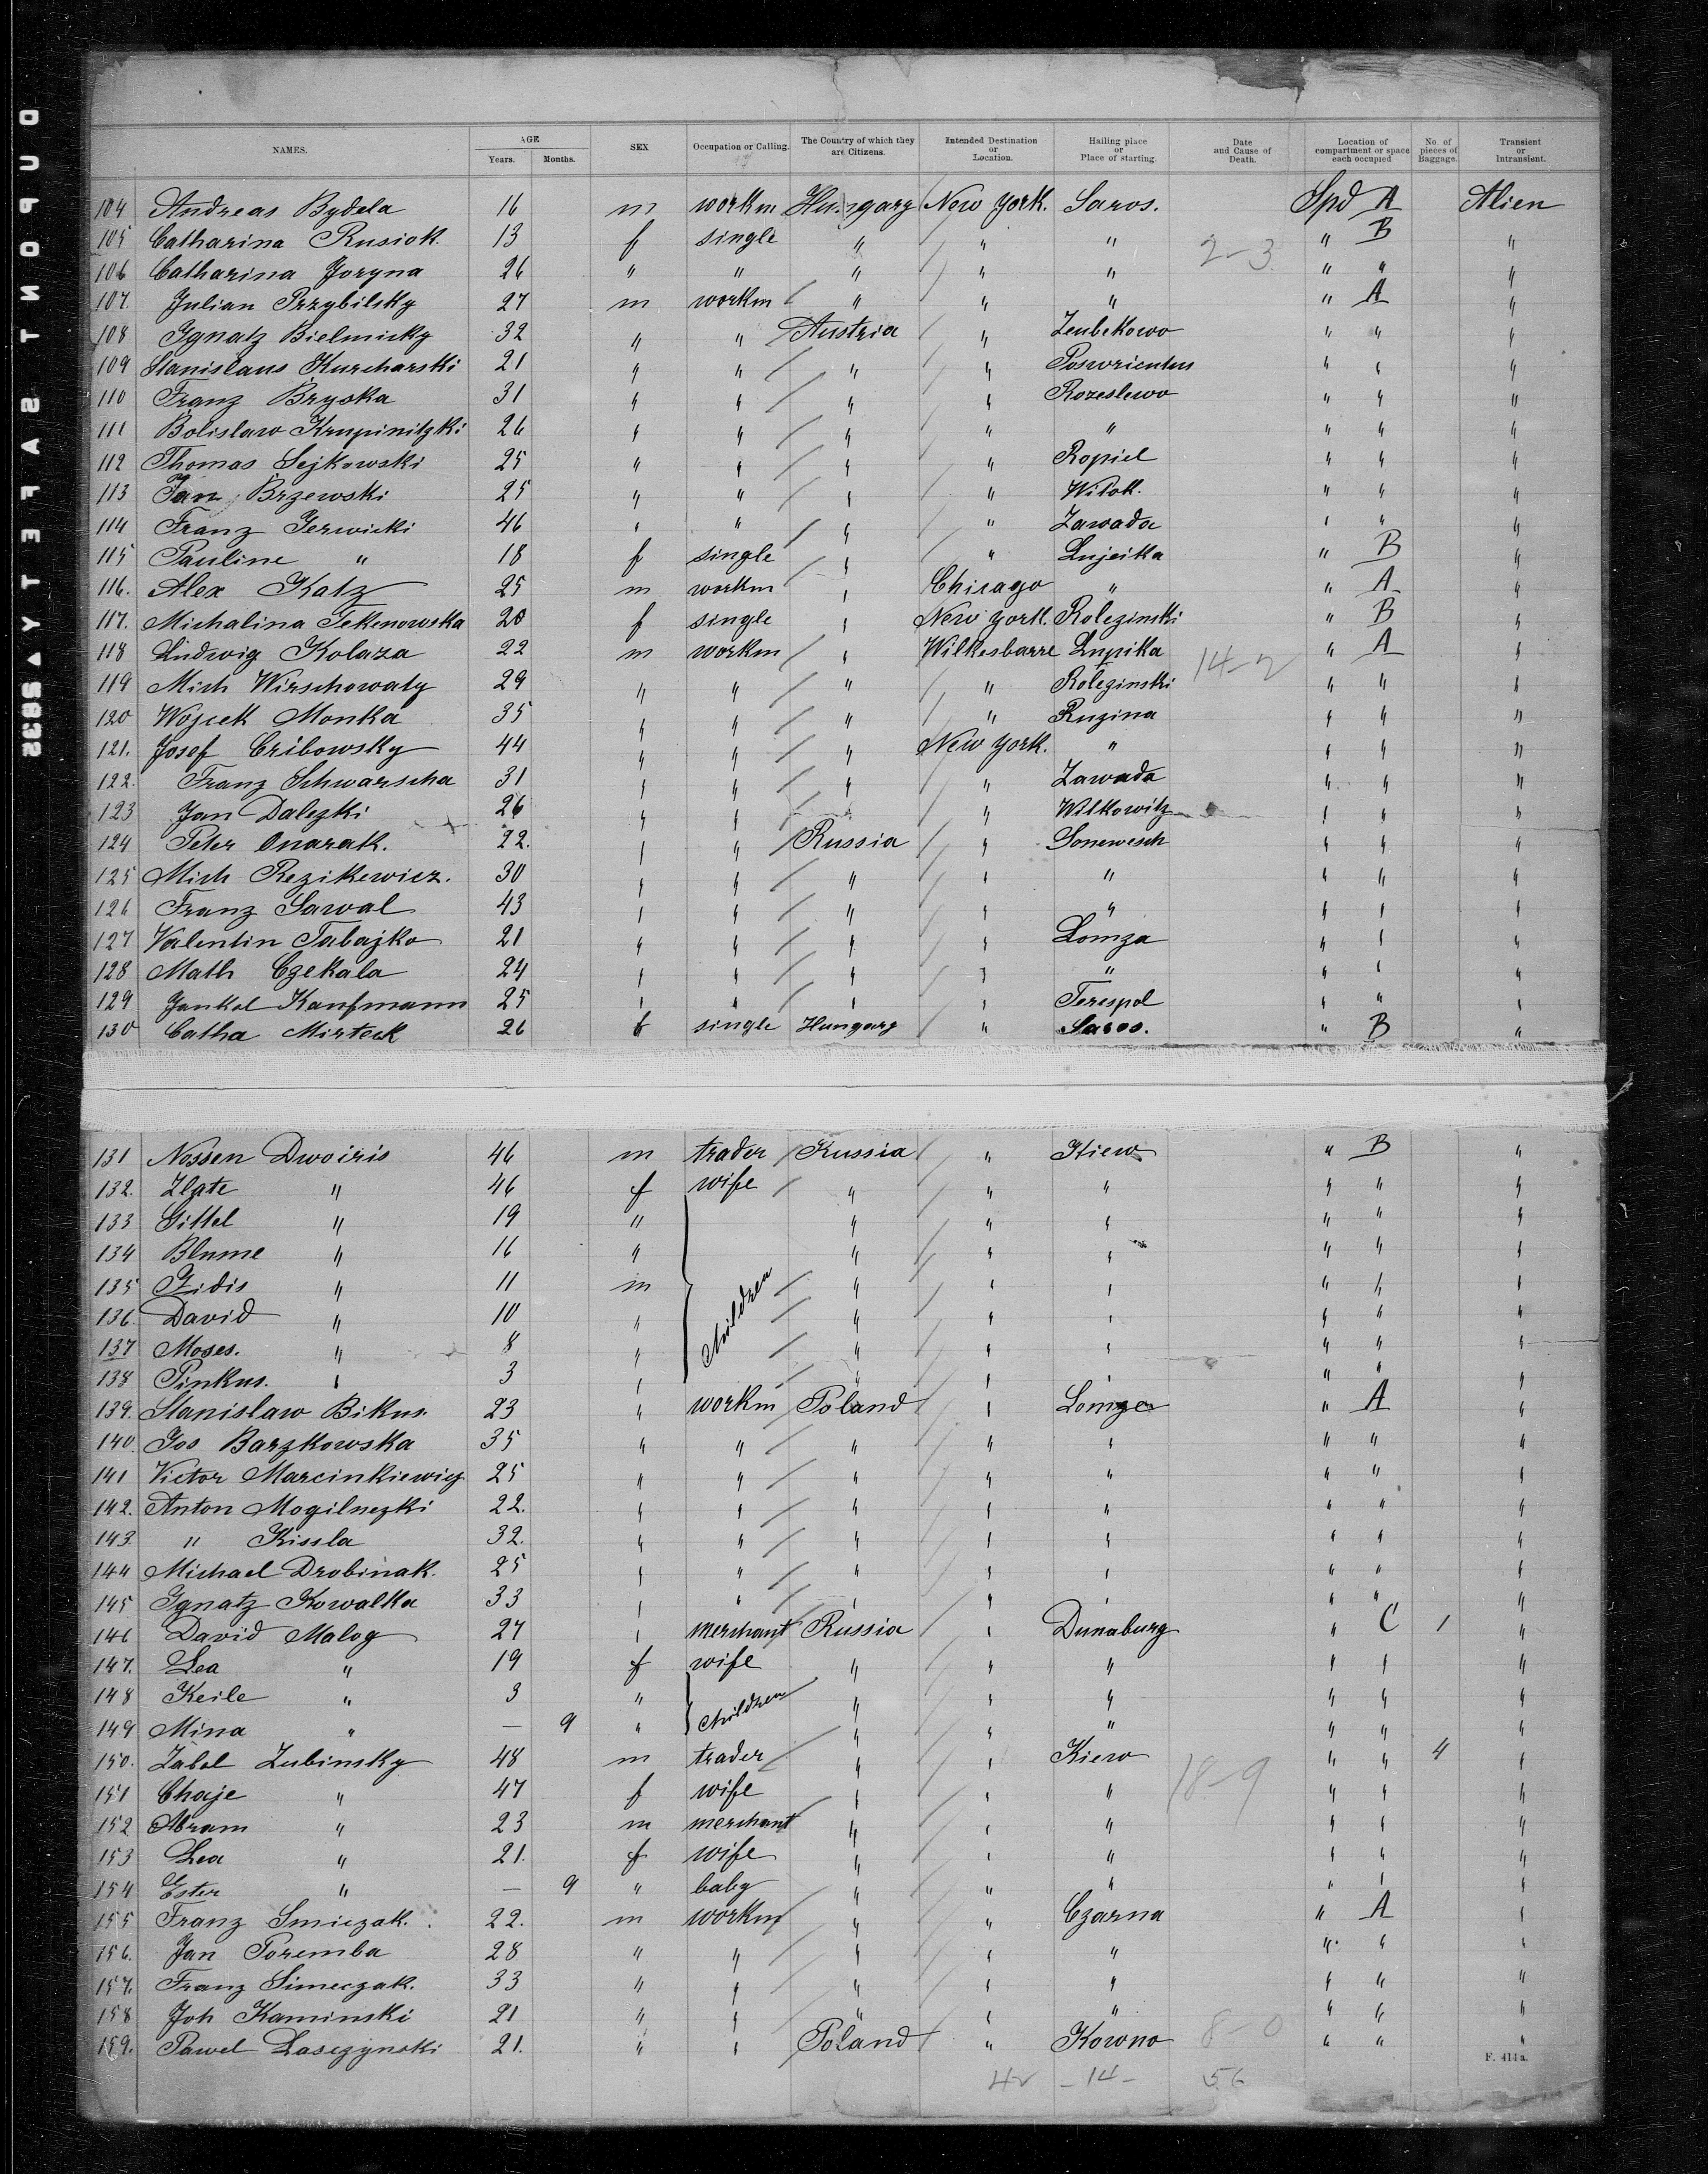 DUPONT SAFETY ▲ 5832
NAMES. AGE Years. Months. SEX Occupation or Calling. The Country of which they are Citizens. Intended Destination or Location. Hailing place or Place of starting. Date and Cause of Death. Location of compartment or space each occupied No. of pieces of Baggage. Transient or Intransient.
104 Andreas Bydela 16 m workm Hungary New York. Saros. Spd A Alien
105 Catharina Rusiok 13 f single " " " 2-3 " B "
106 Catharina Joryna 26 " " " " " " " "
107. Julian Przybilsky 27 m workm " " " " A "
108 Ignatz Bielmicky 32 " " Austria " Zeubekowo " " "
109 Stanislaus Kurcharski 21 " " " " " " "
110 Franz Bryska 31 " " " " Rozeslewo " " "
111 Bolislaw Krupinitzki 26 " " " " " " " "
112 Thomas Sejkowski 25 " " " " Ropiel " " "
113 Jan Brzewski 25 " " " " Witok. " " "
114 Franz Jerwicki 46 " " " " Zawada " " "
115 Pauline " 18 f single " " Lujeika " B "
116. Alex Katz 25 m workm " Chicago " " A "
117. Michalina Tekenowska 20 f single " New York. Rolezinski " B "
118 Ludwig Kolaza 22 m workm " Wilkesbarre Lupika 14-2 " A "
119 Mich Wirschowaty 29 " " " " Rolezinski " " "
120 Wojcek Monka 35 " " " " Ruzina " " "
121. Josef Cribowsky 44 " " " New York. " " " "
122. Franz Schwarscha 31 " " " " Zawada " " "
123 Jan Dalezki 26 " " " " Witkowitz " " "
124 Peter Onarak. 22. " " Russia " Sonewesch " " "
125 Mich Rezikewicz. 30 " " " " " " " "
126 Franz Sawal 43 " " " " " " " "
127 Valentin Tabajko 21 " " " " Lomza " " "
128 Math Czekala 24 " " " " " " " "
129 Jankel Kaufmann 25 " " " " Terespol " " "
130 Catha Mirteck 26 f single Hungary " Saros. " B "
131 Nossen Dwoiris 46 m trader Russia " Kiew " B "
132. Zlate " 46 f wife " " " " " "
133 Gittel " 19 " " " " " " "
134 Blume " 16 " " " " " " "
135 Zidis " 11 m Children " " " " " "
136. David " 10 " " " " " " "
137 Moses. " 8 " " " " " " "
138 Pinkus. " 3 " " " " " " "
139. Stanislaw Bikus. 23 " workm Poland " Lomza " A "
140 Jos Barzkowska 35 " " " " " " " "
141 Victor Marcinkiewicz 25 " " " " " " " "
142. Anton Mogilnezki 22. " " " " " " " "
143. " Kissla 32. " " " " " " " "
144 Michael Drobinak. 25 " " " " " " " "
145 Ignatz Kowalka 33 " " " " " " " "
146 David Malog 27 " merchant Russia " Dunaburg " C 1 "
147. Lea " 19 f wife " " " " " "
148 Keile " 3 " Children " " " " " "
149 Mina " — 9 " " " " " " "
150. Zabel Lubinsky 48 m trader " " Kiew 18-9 " " 4 "
151 Chaje " 47 f wife " " " " " "
152 Abram " 23 m merchant " " " " " "
153 Lea " 21. f wife " " " " " "
154 Ester " — 9 " baby " " " " " "
155 Franz Smiezak. 22. m workm " " Czarna " A "
156. Jan Poremba 28 " " " " " " " "
157. Franz Simeczak. 33 " " " " " " " "
158 Joh Kaminski 21 " " " " " " " "
159. Pawel Lasczynski 21. " " Poland " Kowno 8-0 " " "
42 -14- 56
F. 414a.